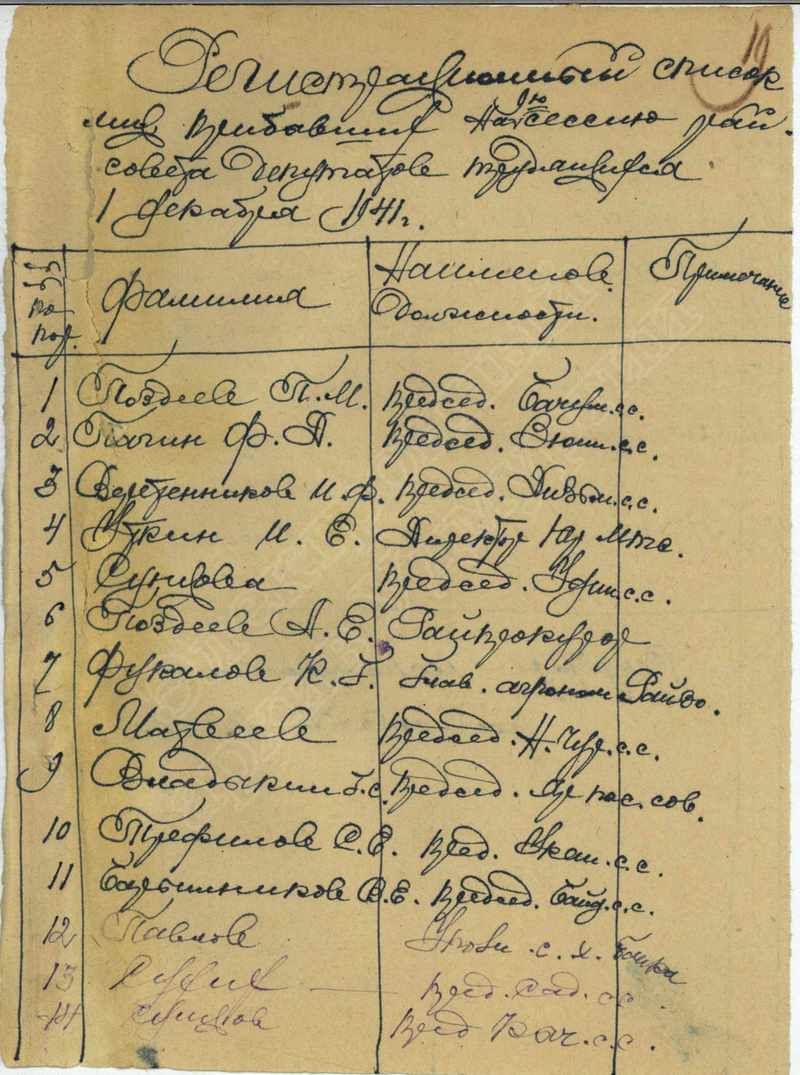 19
Регистрационный список
лиц прибывших на ую сессию рай-
совета депутатов трудящихся
1 декабря 1941 г.
№№ по пор. Фамилия Наименов. должности. Примечание
1 Поздеев П.М. председ. с.с.
2 Пагин Ф.А. председ. с.с.
3 Веретенников И.Ф. председ. с.с.
4 Уткин И.Е. Директор Яр Мтс.
5 Сунцова председ. с.с.
6 Поздеев А.Е. Райпрокурор
7 Фукалов К.Г. Глав. агроном Райзо.
8 Матвеев председ. Н. Чур.с.с.
9 Владыкин Г.С. председ. Яр пос. сов.
10 Трефилов С.Е. пред. Укан.с.с.
11 Барышников В.Е. председ. Байд.с.с.
12 Павлов с.х. банка
13 пред. Сад. сс.
14 пред с.с.